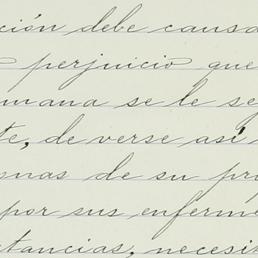 ción debe causa
perjuicio que
mana se le se
te, de verse así
nas de su pro
por sus enferme
stancias, necesi